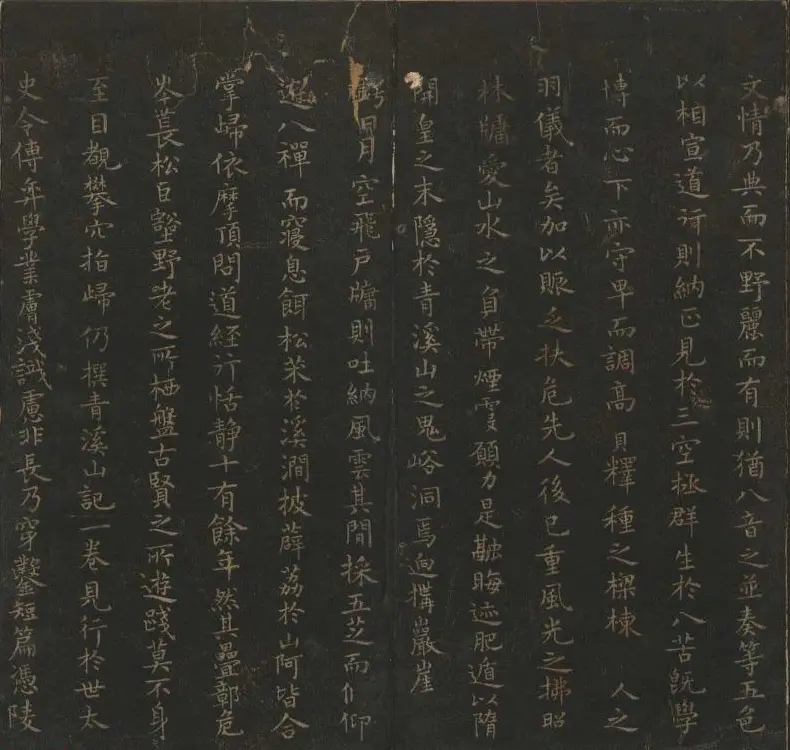 文情乃典而不野麗而有則猶八音之並奏等五色
以相宣道術則納正見於三空拯群生於八苦既學
博而心下亦守卑而調高貝釋種之樑棟　人之
羽儀者矣加以賑乏扶危先人後已重風光之拂昭
林牖愛山水之負帶煙霞願力是融晦迹肥遁以隋
開皇之末隱於青溪山之鬼峪洞焉迥構巖崖
虧日月空飛戶牖則吐納風雲其間採五芝而亻仰
遊八禪而寢息餌松菜於溪澗披薜荔於山阿皆合
掌歸依摩頂問道經行恬靜十有餘年然其疊鄣危
岑萇松巨壑野老之所栖盤古賢之所遊踐莫不身
至目覩攀穴指歸仍撰青溪山記一卷見行於世太
史令傅弈學業膚淺識慮非長乃穿鑿短篇憑陵